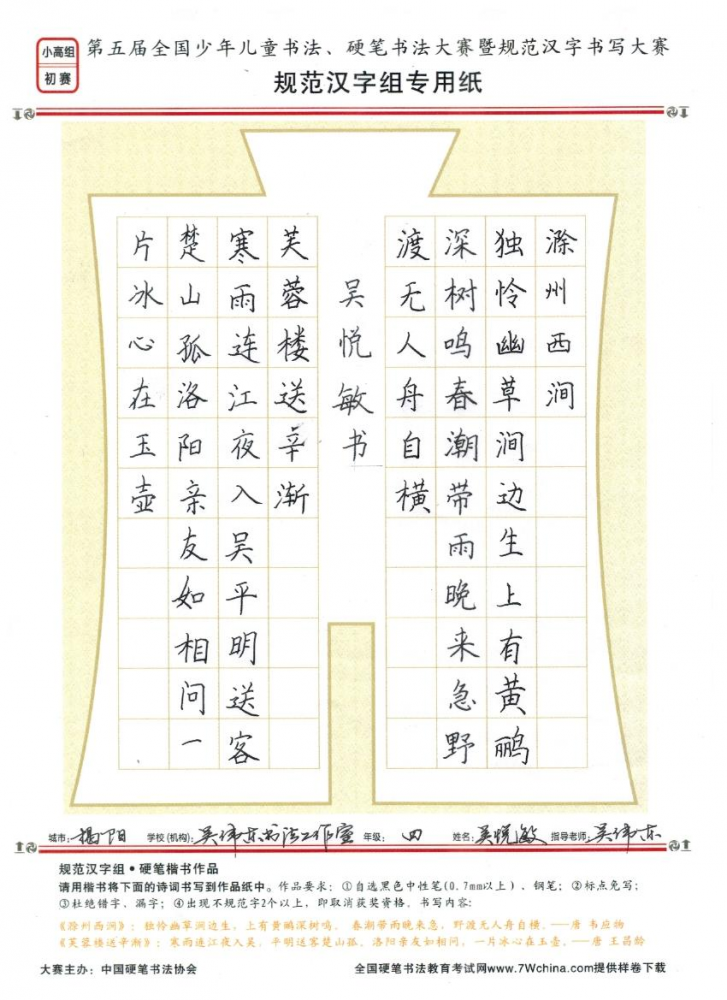 小高组
初赛
第五届全国少年儿童书法、硬笔书法大赛暨规范汉字书写大赛
规范汉字组专用纸
滁州西涧
独怜幽草涧边生上有黄鹂
深树鸣春潮带雨晚来急野
渡无人舟自横
吴悦敏书
芙蓉楼送辛渐
寒雨连江夜入吴平明送客
楚山孤洛阳亲友如相问一
片冰心在玉壶
城市：揭阳 学校(机构)：吴伟东书法工作室 年级：四 姓名：吴悦敏 指导老师：吴伟东
规范汉字组·硬笔楷书作品
请用楷书将下面的诗词书写到作品纸中。作品要求：①自选黑色中性笔(0.7mm以上)、钢笔；②标点免写；
③杜绝错字、漏字；④出现不规范字2个以上，即取消获奖资格。书写内容：
《滁州西涧》：独怜幽草涧边生，上有黄鹂深树鸣。春潮带雨晚来急，野渡无人舟自横。——唐 韦应物
《芙蓉楼送辛渐》：寒雨连江夜入吴，平明送客楚山孤。洛阳亲友如相问，一片冰心在玉壶。——唐 王昌龄
大赛主办：中国硬笔书法协会 全国硬笔书法教育考试网www.7Wchina.com提供样卷下载